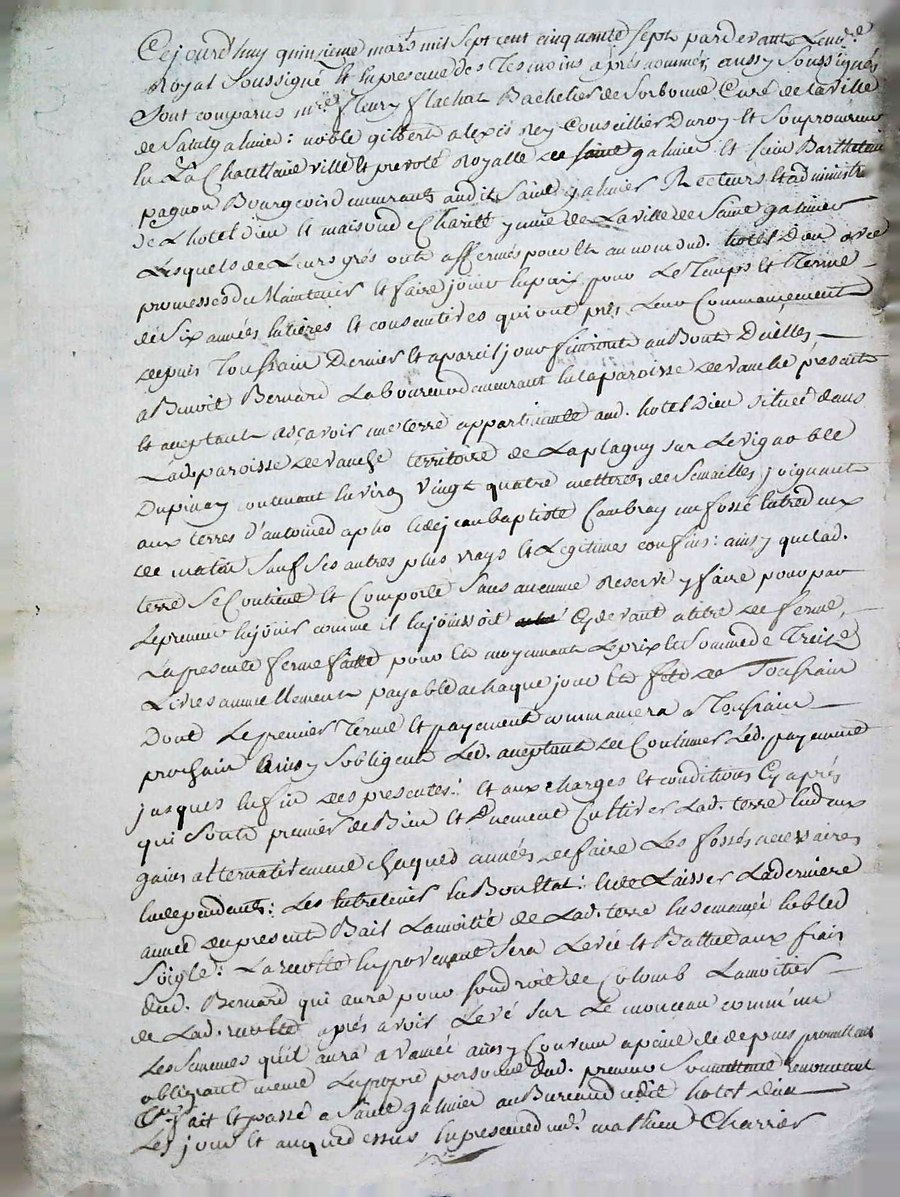 Cejourd'huy quinzieme mars mil sept cent cinquante sept pardevant le no.re
Royal soussigné et en presence des tesmoins après nommés, aussy soussignés
sont comparus m.re fleury flachat Bachelier de Sorbonne Curé de la ville
de Saint galmier: noble gilbert alexis Rey Conseiller Du roy et son procureur
en La Chatellanie ville et prevoté Royalle de saint galmier et sieur Barthelemi
pagnon Bourgeois demeurant audit Saint galmier Recteurs et administre
de L'hotel dieu et maison de Charité unie de La ville de Saint galmier
Lesquels de Leurs grés ont affermés pour et au nom dud. hotel Dieu avec
promesses du Maintenir et faire jouir en paix pour Le Temps et Terme
de Six années entières et consecutives qui ont pris Leur Commancement
depuis Toussain Dernier et a pareil jour finiront au Bout D'icelles
a Benoit Bernard Laboureur demeurant en la paroisse de vauche présent
et aceptant asçavoir une terre appartenante aud. hotel Dieu située dans
Lad. paroisse de vauche territoire de Laplagny sur Le vignoble
Dupinay contenant environ vingt quatre metteres de Semailles, joignant
aux terres d'antoine dapho et de jean baptiste Cambray un fossé entredeux
de matin Sauf ses autres plus vrays et Legitimes confins: ainsy que lad.
terre Se Contient et Comporte Sans aucune Reserve y faire pour par
Le preneur en jouir comme il en jouissoit cy devant a titre de ferme,
La presente ferme faite pour et moyenant Le prix et Somme de Treize
Livres annuellement payable a chaque jour et fete de Toussain
Dont Le premier Terme et payement commancera a Toussain
prochain ainsy s'obligent Led. aceptant de Continuer Led. payement
jusques en fin des presentes: et aux charges et conditions Cy après
qui Sont premier de Bien et Duement Cultiver Lad. terre en deux
gains alternativement chaques années de faire Les fossés necessaires
en dependants: Les entretenir en Bon Etat: et de Laisser La derniere
année du present Bail La moitié de Lad. terre ensemancé en bled
Soigle: La recolte en provenant Sera Levée et Battue aux frais
dud. Bernard qui aura pour Son droit de Colomb La moitier
de Lad. recolte après avoir Levé Sur Le monceau commun
Les Semences qu'il aura avancé ainsy Convenu a peine de depens promettant
obligeant meme La propre personne dud. preneur Soumettant renoncant
C.r fait et passé a Saint galmier au Bureau dudit hotel dieu
Les jour et an que dessus en presence de m.re mathieu Charrier